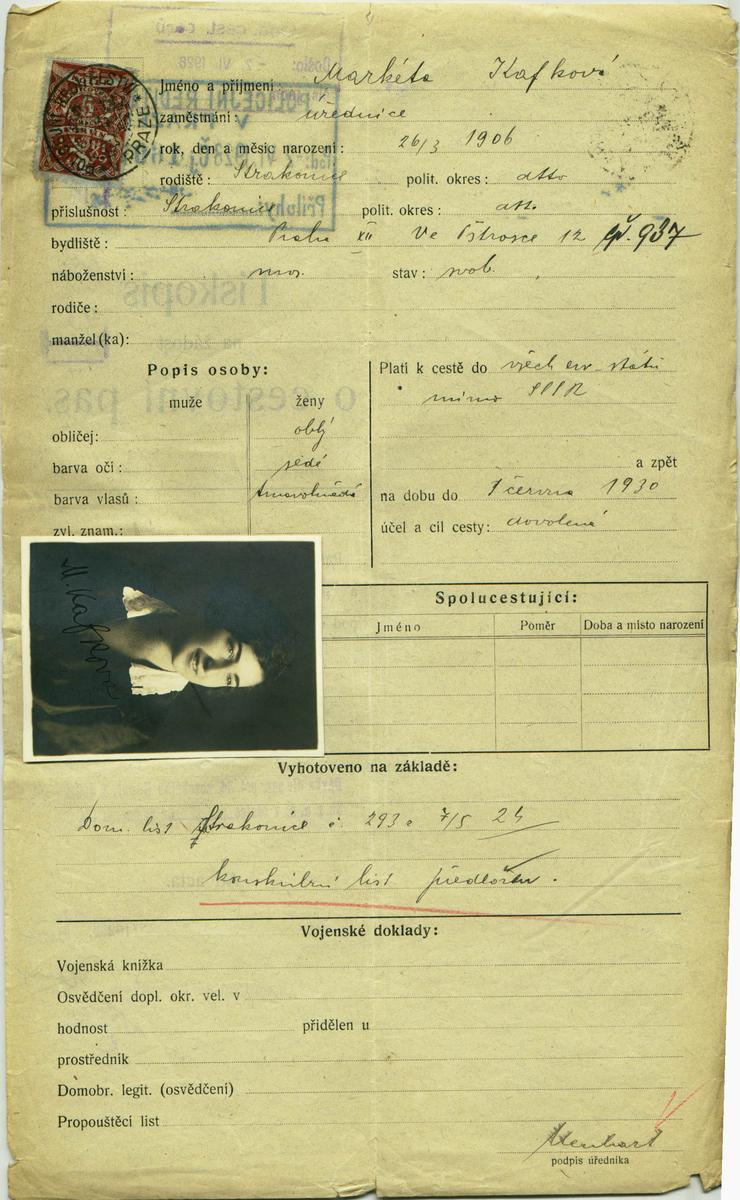 Jméno a příjmení: Markéta Kafková
zaměstnání: úřednice
rok, den a měsic narození: 26/3 1906
rodiště: Strakonice polit. okres: dtto
příslušnost: Strakonice polit. okres: dtto
bydliště: Praha XII Ve Pštrosce 12 čp. 937
náboženství: mos. stav: svob.
rodiče:
manžel(ka):
Popis osoby:
muže ženy
obličej: oblý
barva oči: šedé
barva vlasů: tmavohnědá
zvl. znam.:
Platí k cestě do všech evr. států
mimo SSSR
a zpět
na dobu do 1 června 1930
účel a cíl cesty: dovolená
M. Kafková
Spolucestující:
Jméno Poměr Doba a místo narození
Vyhotoveno na základě:
Dom. list Strakonice č 293 z 7/5 24
list předložen.
Vojenské doklady:
Vojenská knížka
Osvědčení dopl. okr. vel. v
hodnost přidělen u
prostředník
Domobr. legit. (osvědčení)
Propouštěcí list
podpis úředníka
POLICEJNÍ ŘED
V PRA
Přílohy
Tiskopis
na žádost
o cestovní pas
PRAZE
5